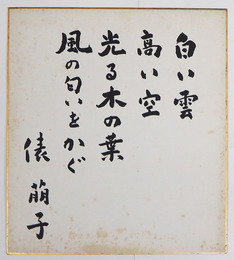 白い雲
高い空
光る木の葉
風の匂いをかぐ
俵 萠子